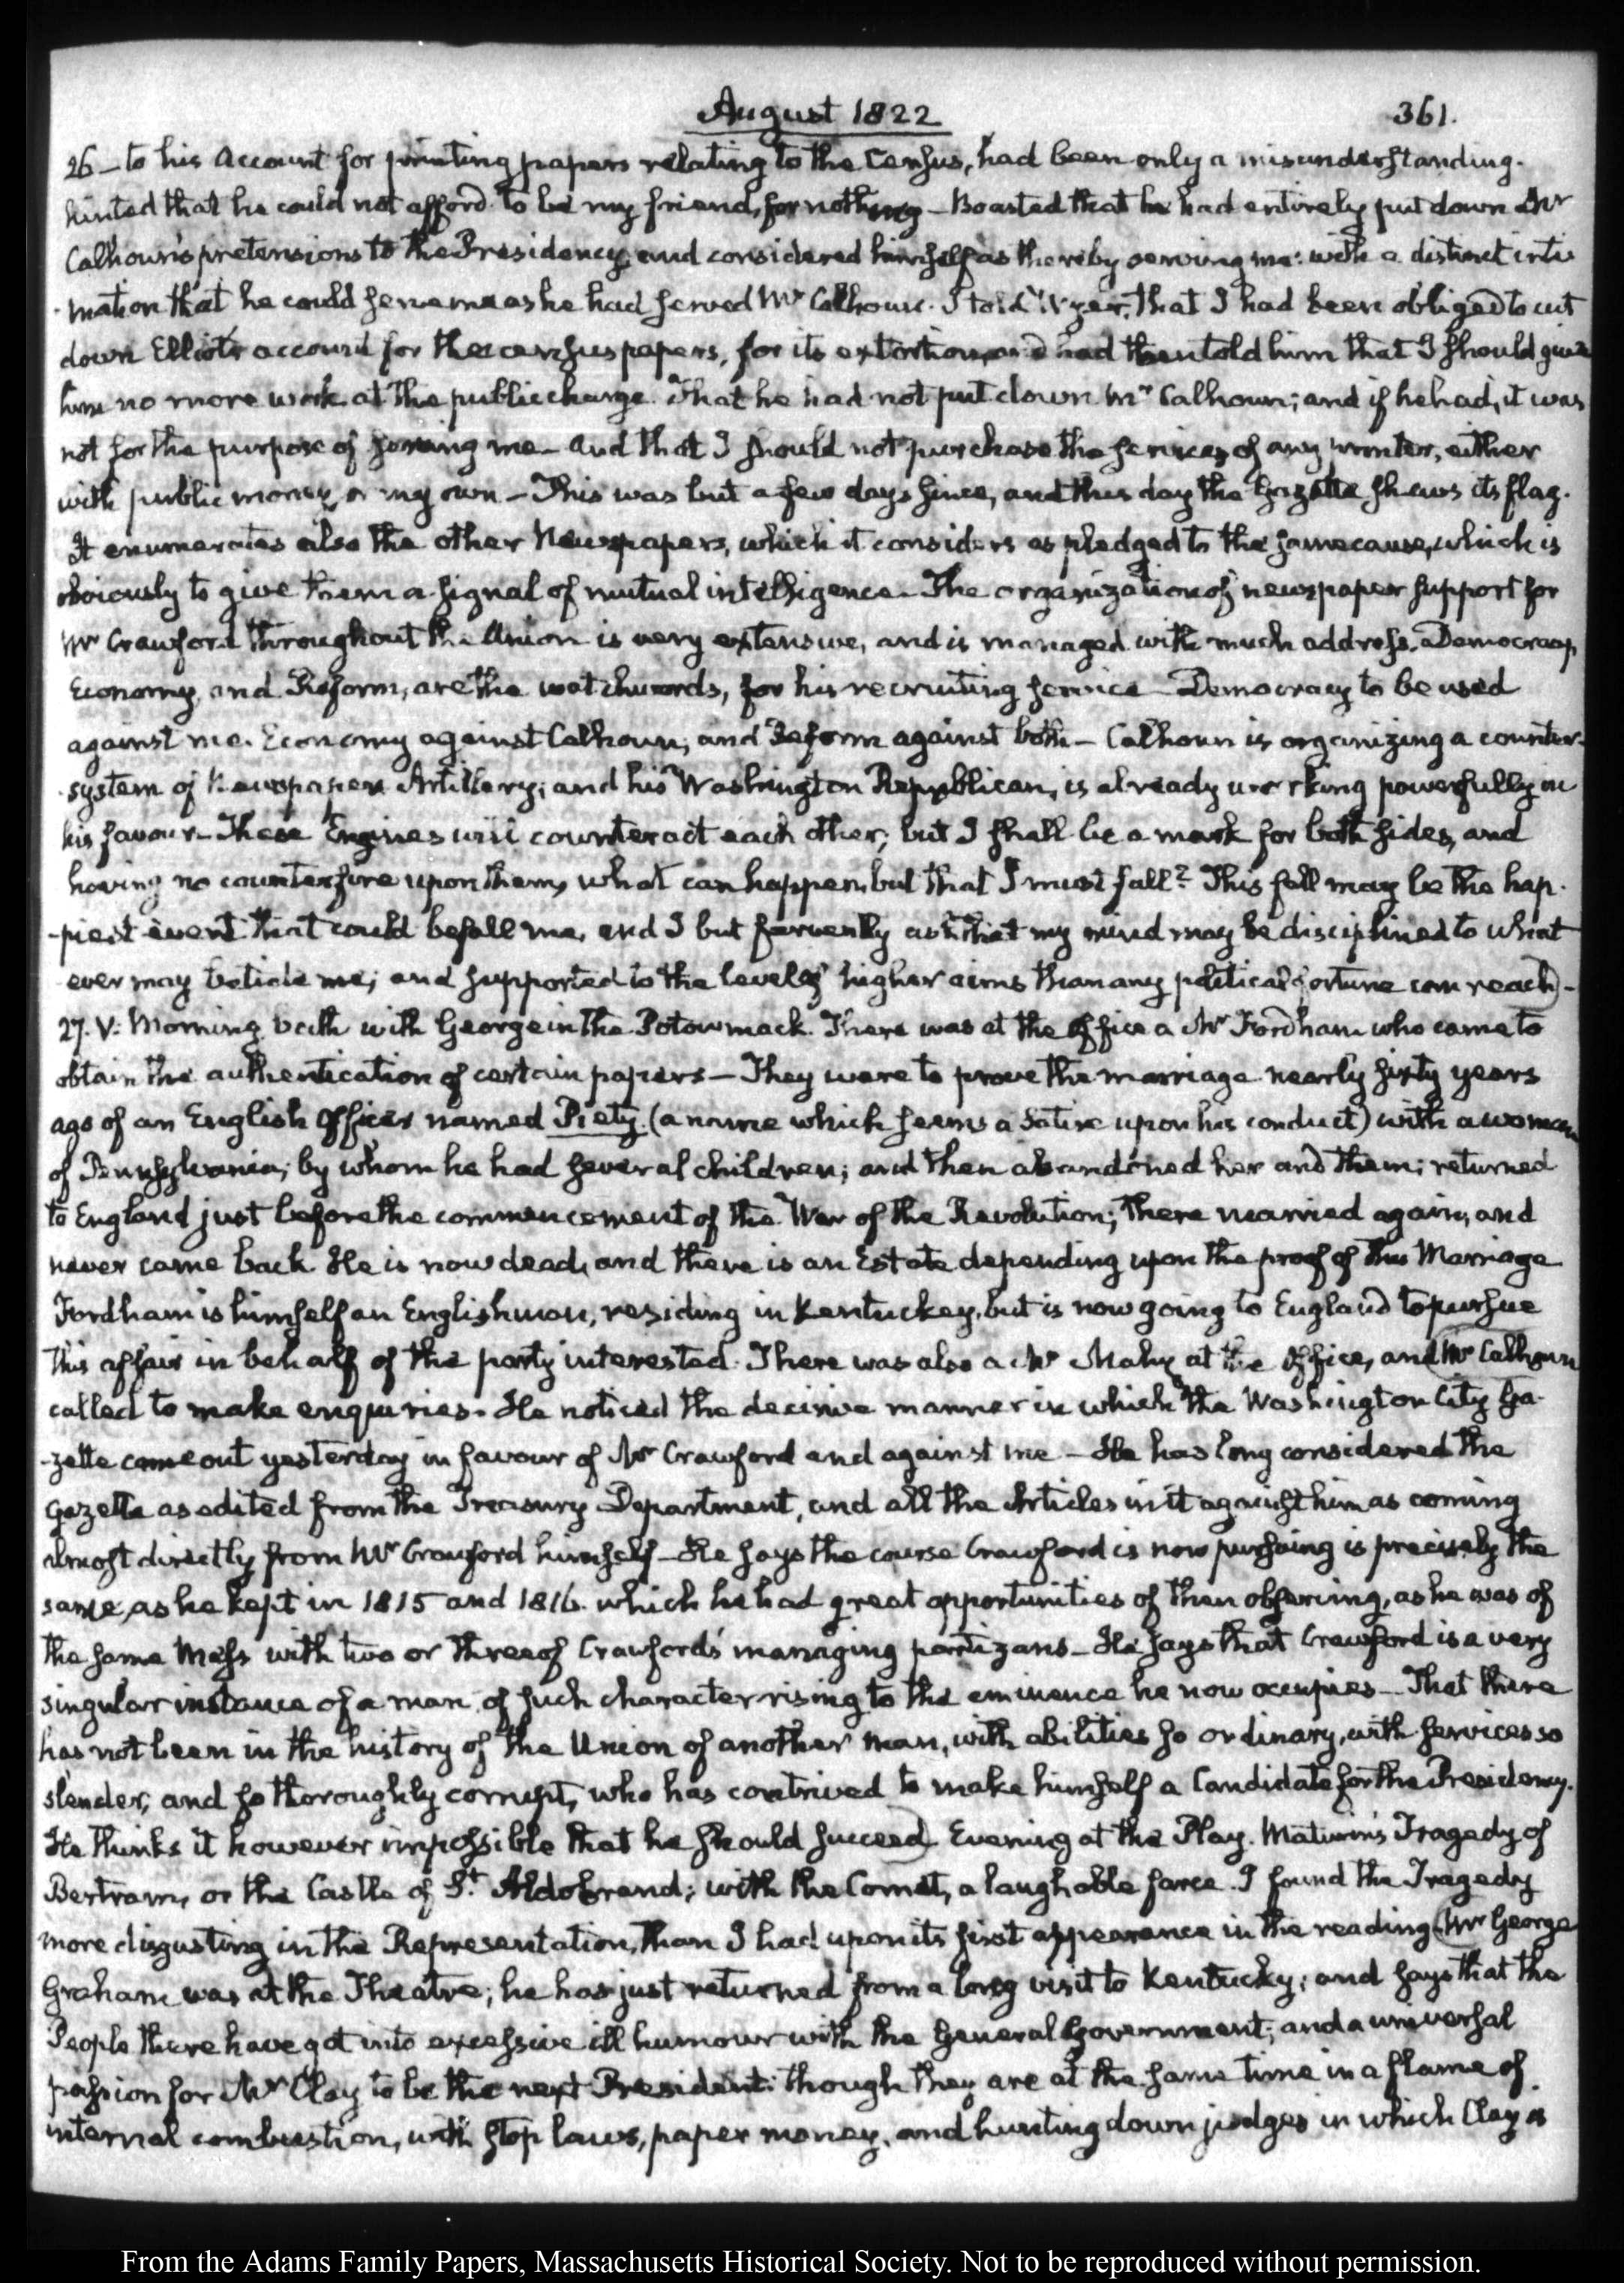 August 1822
361.
26 – to his Account for printing papers relating to the Census, had been only a misunderstanding.
hinted that he could not afford to be my friend, for nothing – Boasted that he had entirely put down Mr
Calhoun's pretensions to the Presidency, and considered himself as thereby serving me: with a distinct inti-
-mation that he could serve me as he had served Mr Calhoun. I told Wyer, that I had been obliged to cut
down Elliot's account for the census papers, for its extortion, and had then told him that I should give
him no more work at the public charge. That he had not put down Mr Calhoun; and if he had, it was
not for the purpose of serving me – And that I should not purchase the services of any printer, either
with public money, or my own – This was but a few days since, and this day the Gazette shews its flag.
It enumerates also the other Newspapers, which it considers as pledged to the same cause, which is
obviously to give them a signal of mutual intelligence. The organization of newspaper support for
Mr Crawford throughout the Union is very extensive, and is managed with much address. Democracy,
Economy, and Reform, are the watchwords, for his recruiting service – Democracy to be used
against me. Economy against Calhoun, and Reform against both – Calhoun is organizing a counter-
system of Newspaper Artillery; and his Washington Republican, is already working powerfully in
his favour – These Engines will counteract each other; but I shall be a mark for both sides, and
having no counter-fire upon them, what can happen, but that I must fall? This fall may be the hap-
-piest event that could befall me, and I but fervently ask that my mind may be disciplined to what
ever may betide me; and supported to the level of higher aims than any political fortune can reach) –
27. V: Morning bath with George in the Potowmack. There was at the Office a Mr Fordham who came to
obtain the authentication of certain papers – They were to prove the marriage nearly sixty years
ago of an English Officer named Piety (a name which seems a Satire upon his conduct) with a woman
of Pennsylvania; by whom he had several children; and then abandoned her and them; returned
to England just before the commencement of the War of the Revolution; There married again, and
never came back. He is now dead, and there is an Estate depending upon the proof of this Marriage
Fordham is himself an Englishman, residing in Kentuckey, but is now going to England to pursue
This affair in behalf of the party interested. There was also a Mr Mahy at the Office, and (Mr Calhoun
called to make enquiries. He noticed the decisive manner in which the Washington City Ga-
-zette came out yesterday in favour of Mr Crawford and against me – He has long considered the
Gazette as edited from the Treasury Department, and all the Articles in it against him as coming
almost directly from Mr Crawford himself – He says the course Crawford is now pursuing is precisely the
same, as he kept in 1815 and 1816. which he had great opportunities of then observing, as he was of
the same Mess with two or three of Crawford's managing partizans – He says that Crawford is a very
singular instance of a man of such character rising to the eminence he now occupies – That there
has not been in the history of the Union of another man, with abilities so ordinary, with services so
slender, and so thoroughly corrupt, who has contrived to make himself a Candidate for the Presidency.
He thinks it however impossible that he should succeed) Evening at the Play. Maturin's Tragedy of
Bertram, or the Castle of St. Aldobrand; with the Comet, a laughable farce. I found the Tragedy
more disgusting in the Representation, than I had upon its first appearance in the reading (Mr George
Graham was at the Theatre; he has just returned from a long visit to Kentucky; and says that the
People there have got into excessive ill humour with the General Government; and a universal
passion for Mr Clay to be the next President: though they are at the same time in a flame of
internal combustion, with stop laws, paper money, and hunting down judges in which Clay is
From the Adams Family Papers, Massachusetts Historical Society. Not to be reproduced without permission.